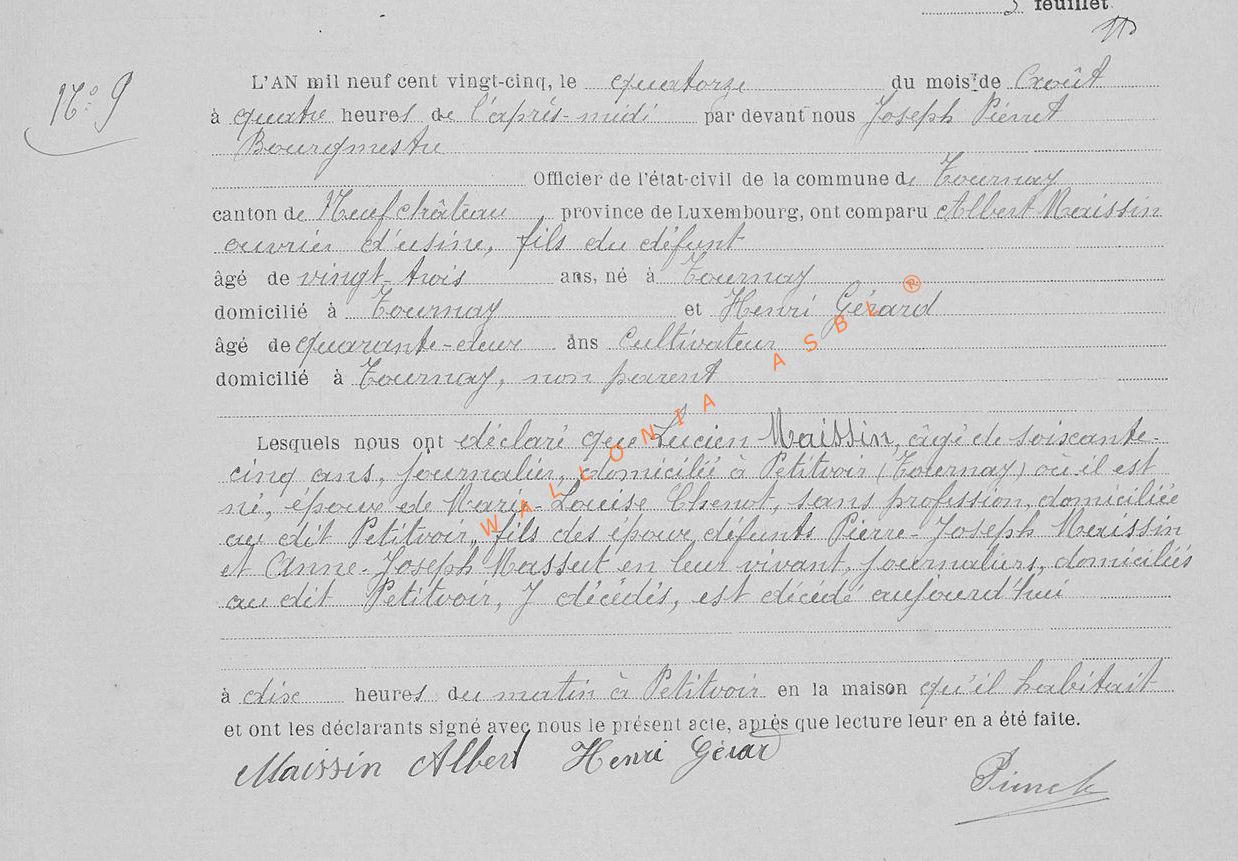 3 feuillet
N° 9
L'AN mil neuf cent vingt-cinq, le quatorze du mois de Août
à quatre heures de l'après-midi par devant nous Joseph Pierret
Bourgmestre
Officier de l'état-civil de la commune de Tournay
canton de Neufchâteau province de Luxembourg, ont comparu Albert Maissin
ouvrier d'usine, fils du défunt
âgé de vingt-trois ans, né à Tournay
domicilié à Tournay et Henri Gérard
âgé de quarante-deux ans cultivateur
domicilié à Tournay, non parent
Lesquels nous ont déclaré que Lucien Maissin, âgé de soixante-
cinq ans, journalier, domicilié à Petitvoir (Tournay) où il est
né, époux de Marie-Louise Chenot, sans profession, domiciliée
au dit Petitvoir, fils des époux défunts Pierre-Joseph Maissin
et Anne-Joseph Massut en leur vivant, journaliers, domiciliés
au dit Petitvoir, y décédés, est décédé aujourd'hui
à dix heures du matin à Petitvoir en la maison qu'il habitait
et ont les déclarants signé avec nous le présent acte, après que lecture leur en a été faite.
Maissin Albert Henri Gérard
WALLONIA ASBL ®